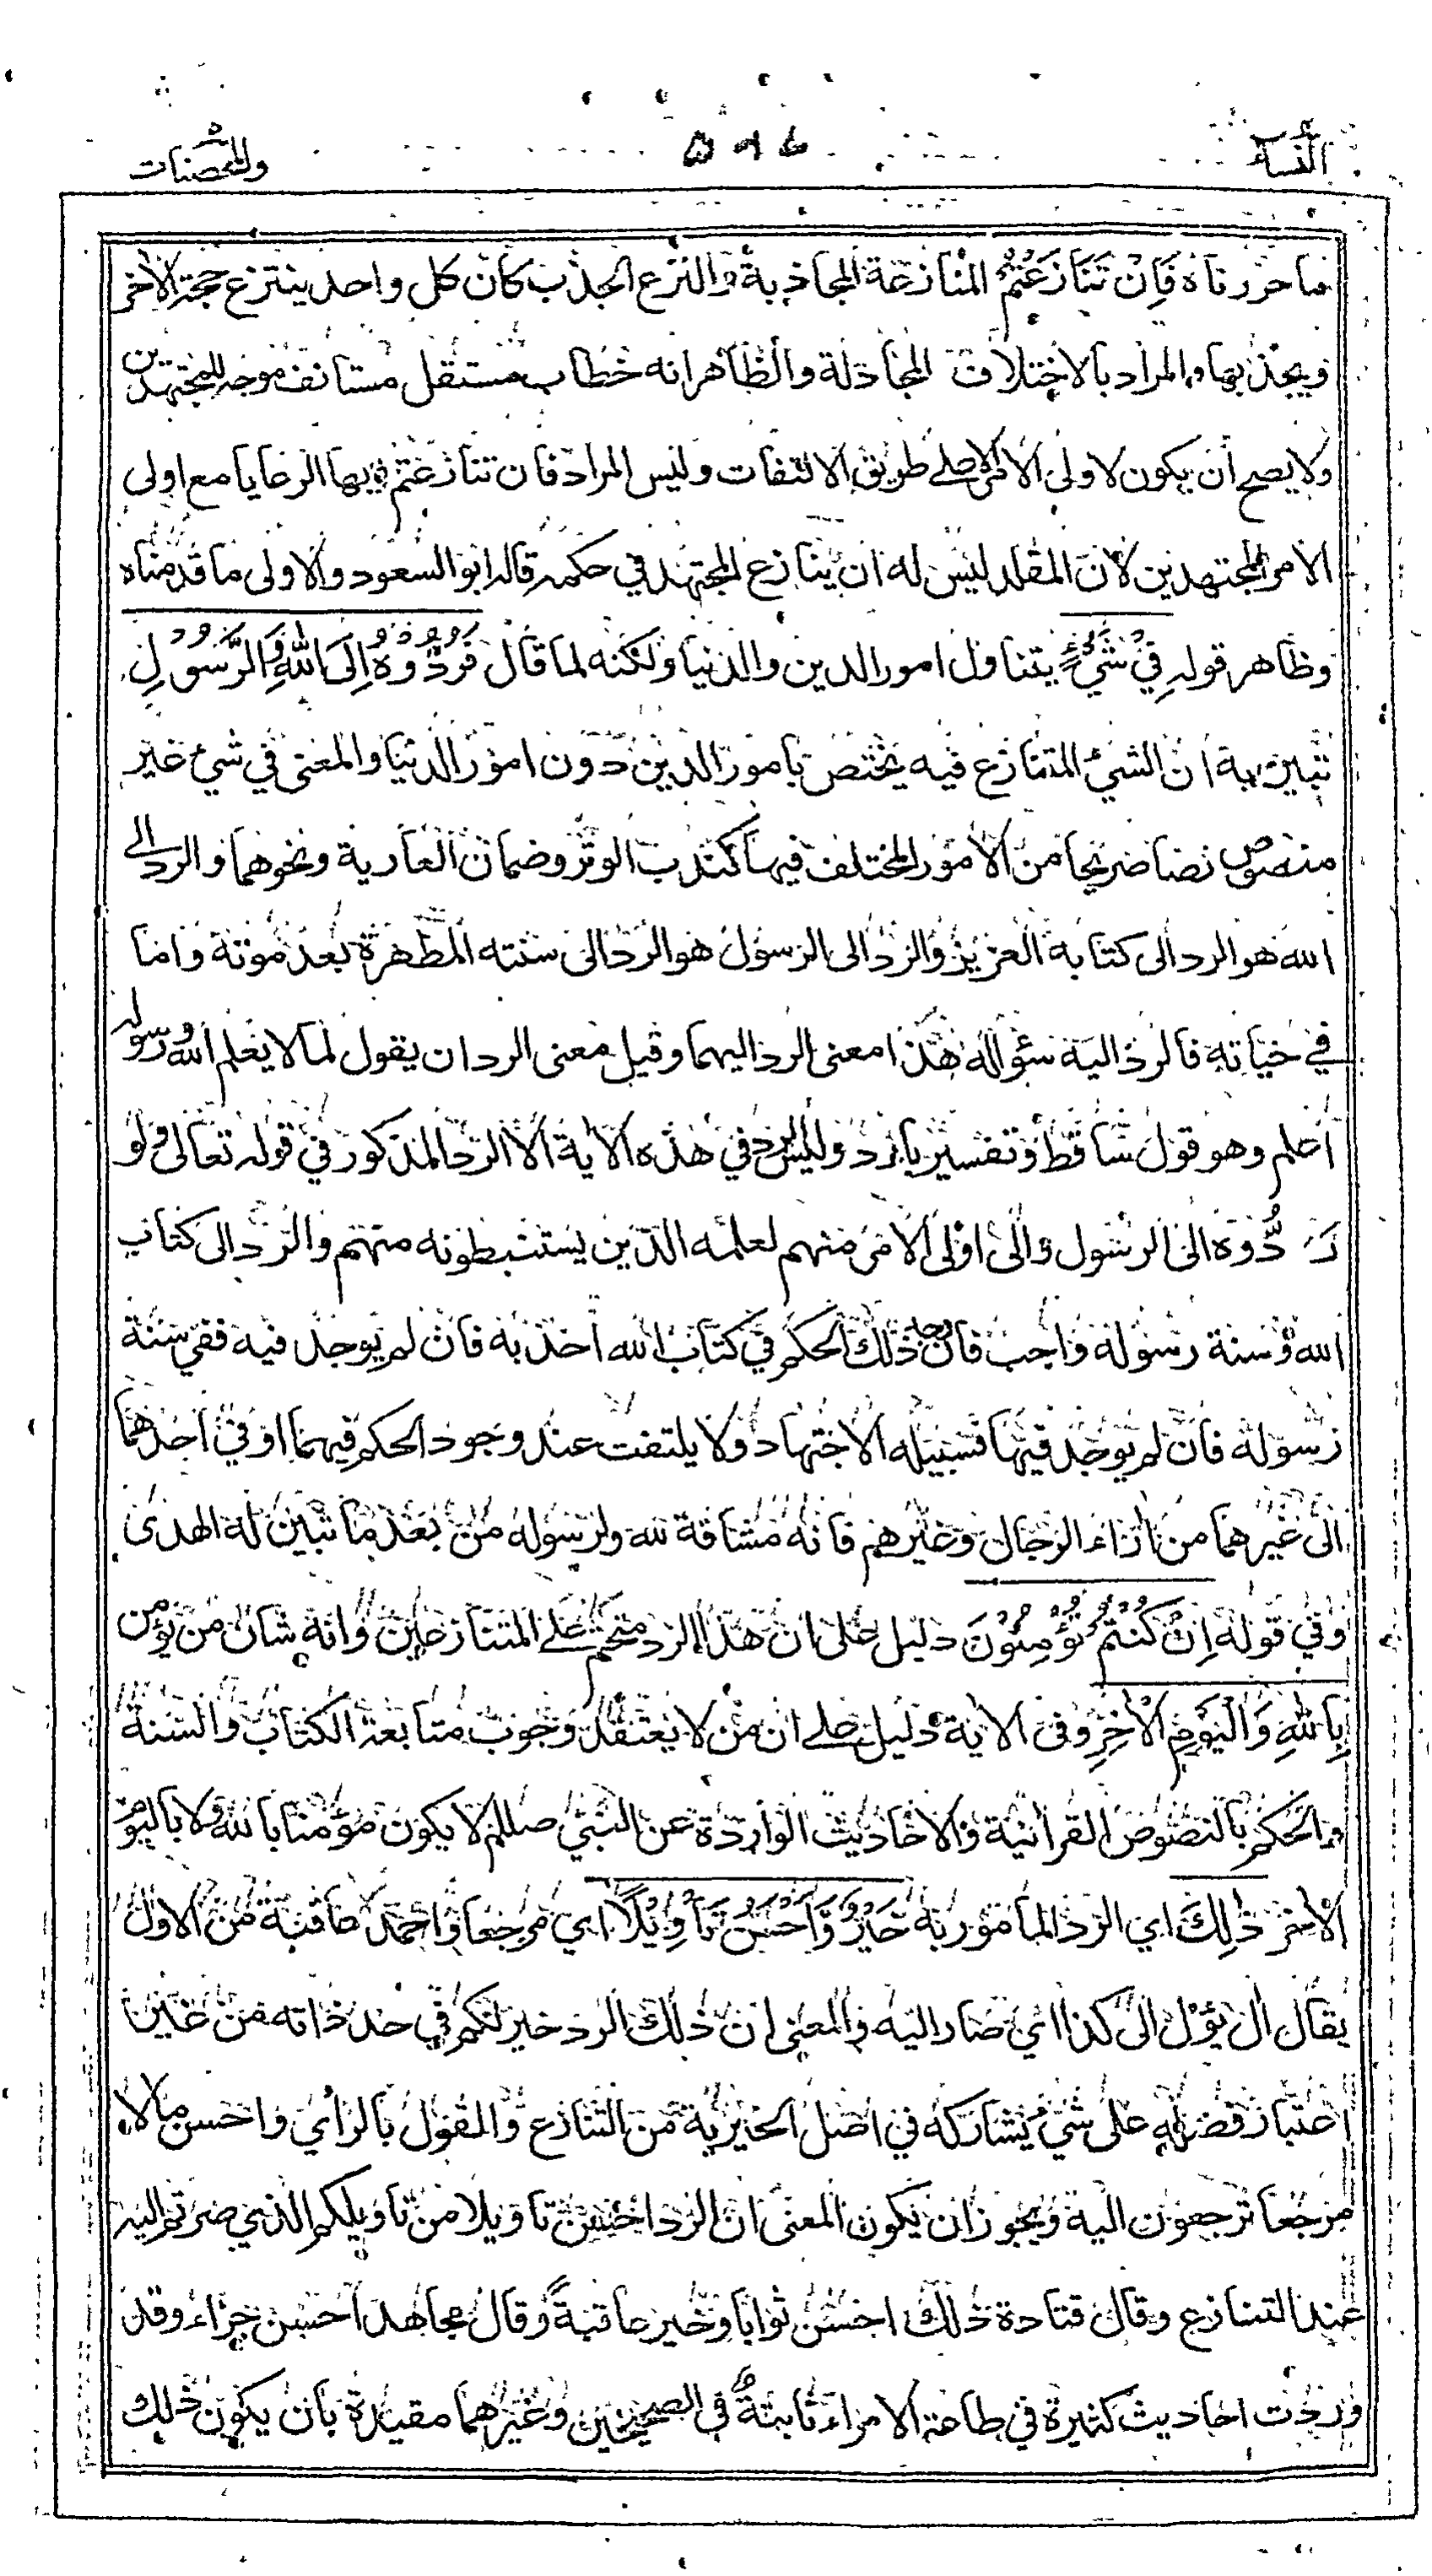 النساء
٥٩٦
والمحصنات
ما حررناه فَاِنْ تَنَازَعْتُمْ المنازعة المجاذبة والنزع الجذب كان كل واحد ينتزع حجة الاخر
ويجذبها والمراد بالاختلاف المجادلة والظاهر انه خطاب مستقل مستانف موجه للمجتهدين
ولا يصح ان يكون لاولى الامر الا على طريق الالتفات وليس المراد فان تنازعتم ايها الرعايا مع اولى
الامر المجتهدين لان المقلد ليس له ان ينازع المجتهد في حكمه قاله ابو السعود والاولى ما قدمناه
وظاهر قوله فِيْ شَيْءٍ يتناول امور الدين والدنيا ولكنه لما قال فَرُدُّوْهُ اِلَى اللّٰهِ وَالرَّسُوْلِ
تبين به ان الشيء المتنازع فيه يختص بامور الدين دون امور الدنيا والمعنى في شيء غير
منصوص نصا صريحا من الامور المختلف فيها كندب الوتر وضمان العارية ونحوهما والرد الى
الله هو الرد الى كتابه العزيز والرد الى الرسول هو الرد الى سنته المطهرة بعد موته واما
في حياته فالرد اليه سؤاله هذا معنى الرد اليهما وقيل معنى الرد ان يقول لما لا يعلم الله ورسوله
اعلم وهو قول ساقط وتفسير بارد وليس الرد في هذه الاية الا الرد المذكور في قوله تعالى ولو
ردُّوه الى الرسول والى اولى الامر منهم لعلمه الذين يستنبطونه منهم والرد الى كتاب
الله وسنة رسوله واجب فان وجد ذلك الحكم في كتاب الله اخذ به فان لم يوجد فيه ففي سنة
رسوله فان لم يوجد فيها فسبيله الاجتهاد ولا يلتفت عند وجود الحكم فيهما او في احدهما
الى غيرهما من اراء الرجال وغيرهم فانه مشاقة لله ولرسوله من بعد ما تبين له الهدى
وفي قوله اِنْ كُنْتُمْ تُؤْمِنُوْنَ دليل على ان هذا الرد متحتم على المتنازعين وانه شان من يؤمن
بِاللّٰهِ وَالْيَوْمِ الْاٰخِرِ وفى الاية دليل على ان من لا يعتقد وجوب متابعة الكتاب والسنة
والحكم بالنصوص القرانية والاحاديث الواردة عن النبي صللم لا يكون مؤمنا بالله ولا باليوم
الاخر ذٰلِكَ اي الرد المامور به خَيْرٌ وَّاَحْسَنُ تَاْوِيْلًا اي مرجعا واحمد عاقبة من الاول
يقال ال يؤل الى كذا اي صار اليه والمعنى ان ذلك الرد خير لكم في حد ذاته من غير
اعتبار فضله على شيء يشاركه في اصل الخيرية من التنازع والقول بالراي واحسن مالا
مرجعا ترجعون اليه ويجوز ان يكون المعنى ان الرد احسن تاويلا من تاويلكم الذي صرتم اليه
عند التنازع وقال قتادة ذلك احسن ثوابا وخير عاقبة وقال مجاهد احسن جزاء وقد
وردت احاديث كثيرة في طاعة الامراء ثابتة في الصحيحين وغيرهما مقيدة بان يكون ذلك